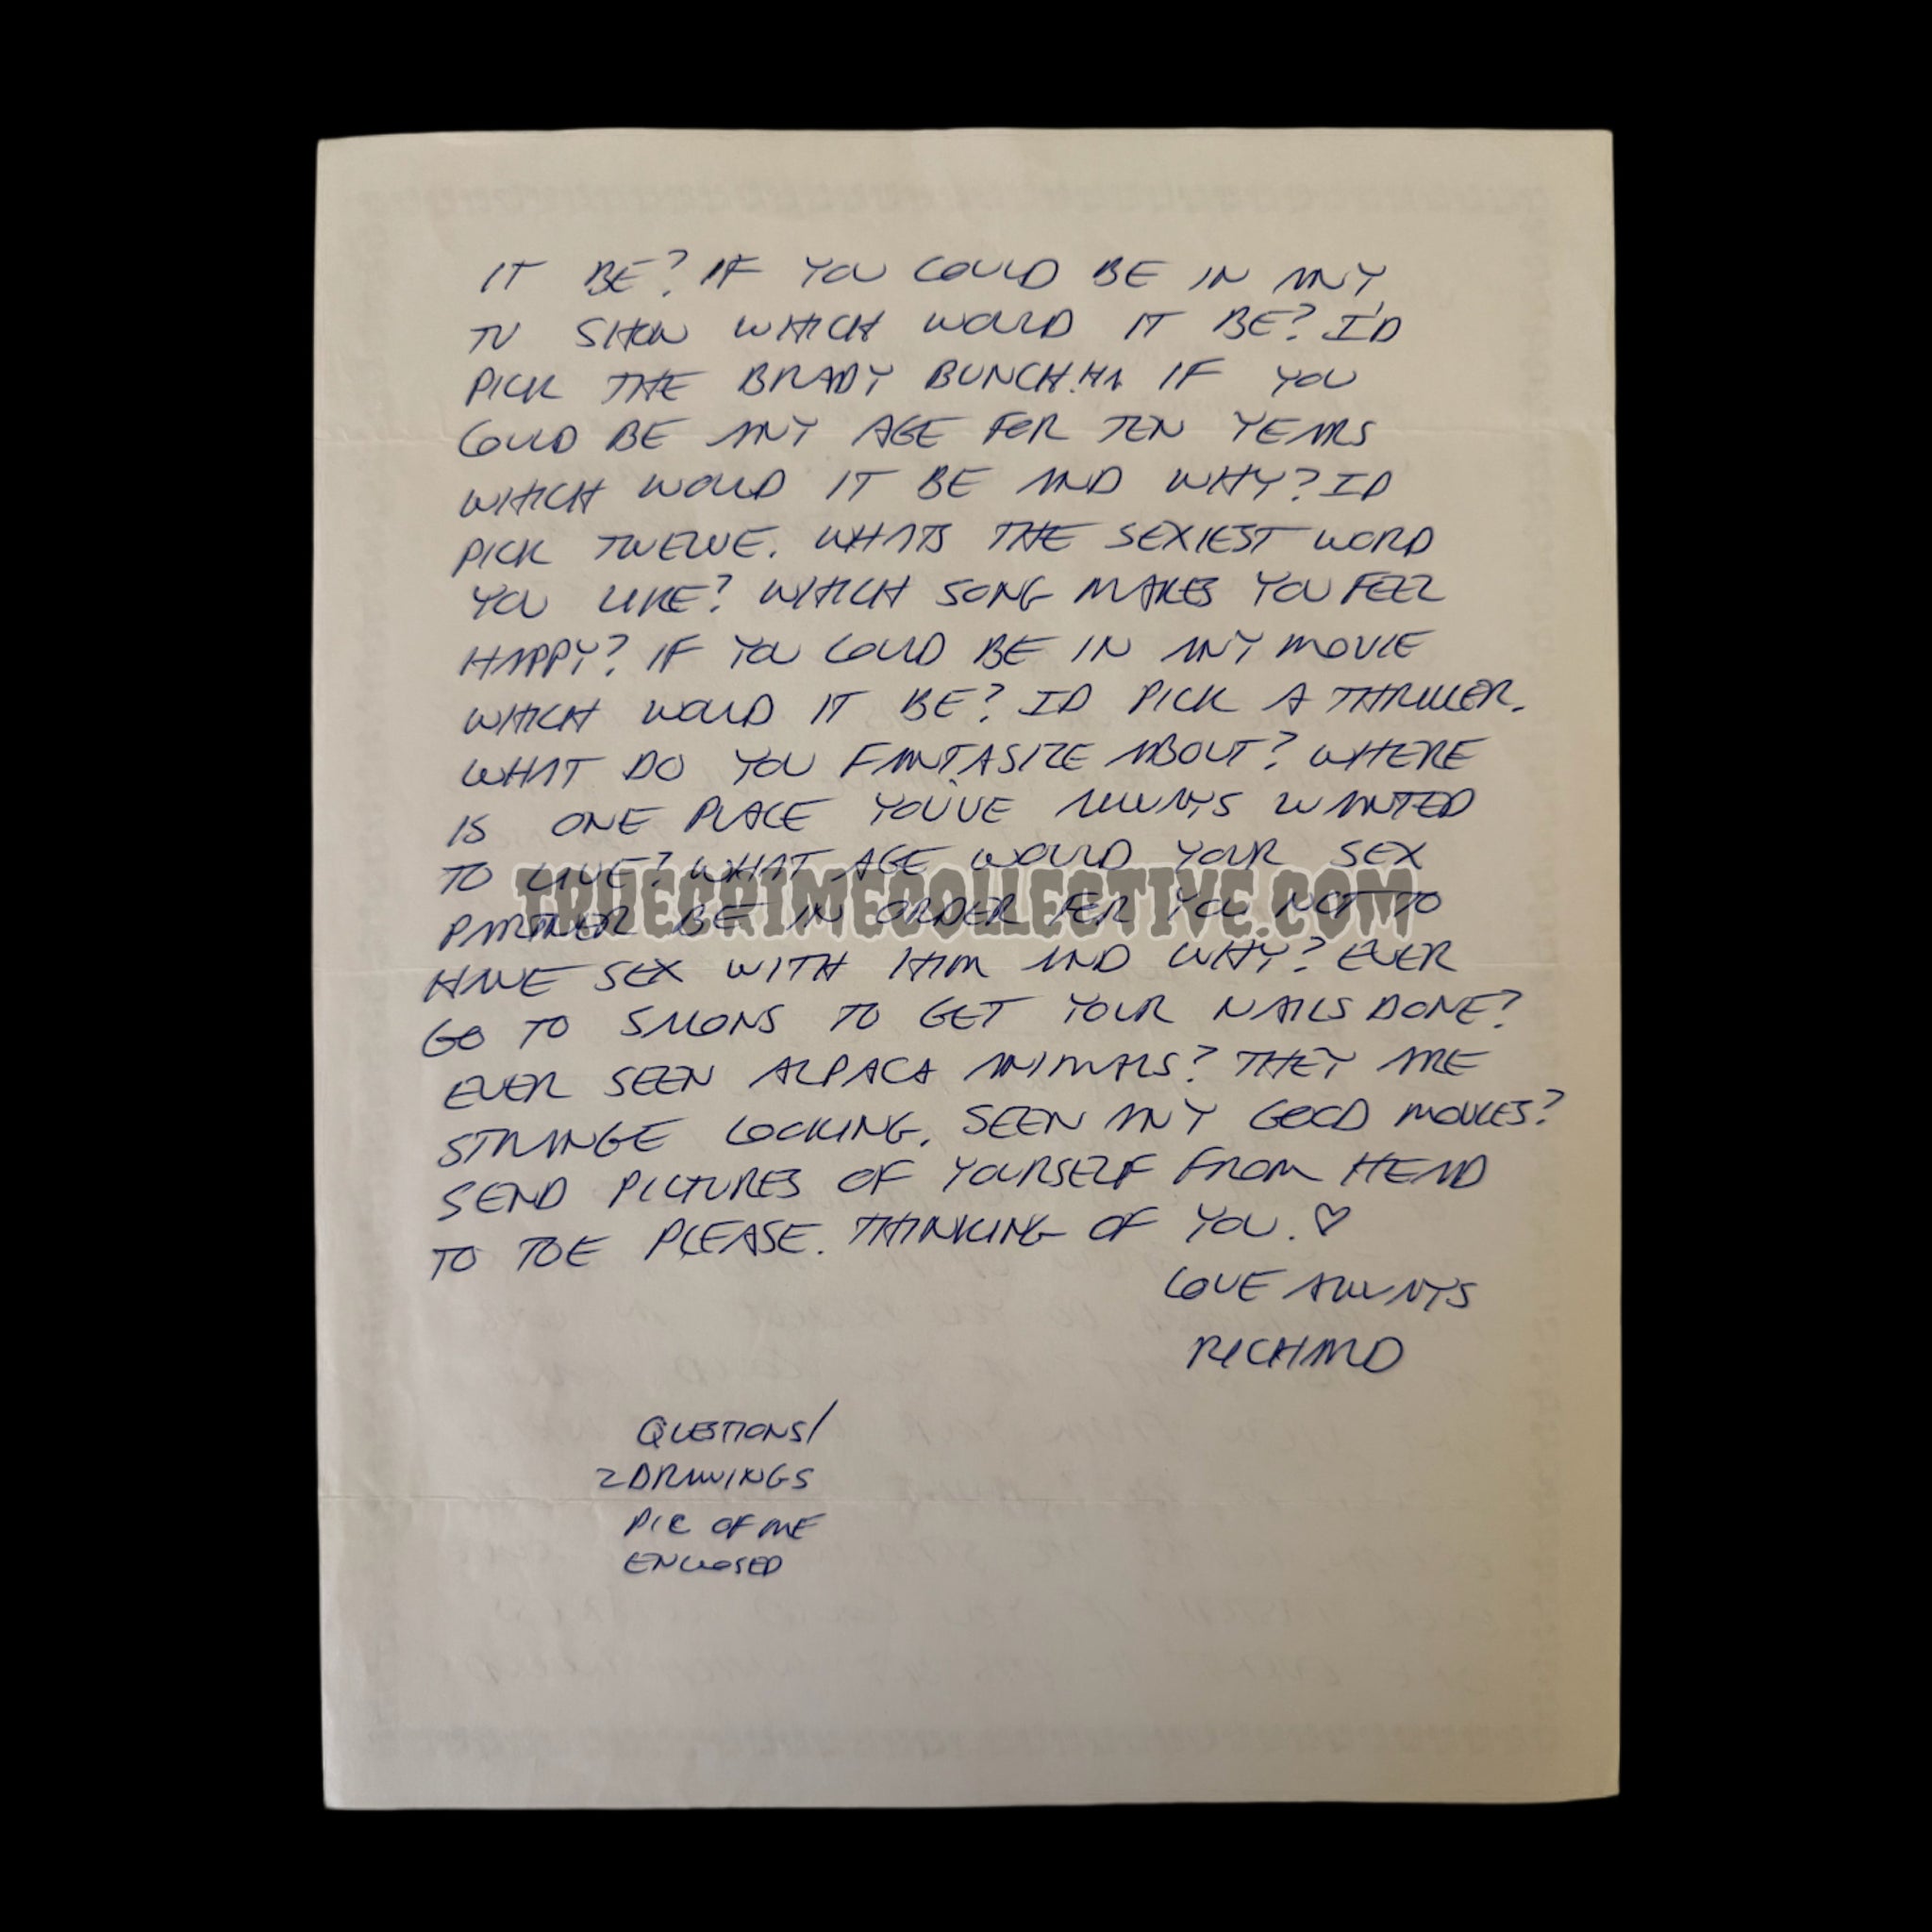 IT BE? IF YOU COULD BE IN ANY
TV SHOW WHICH WOULD IT BE? I'D
PICK THE BRADY BUNCH. HA IF YOU
COULD BE ANY AGE FOR TEN YEARS
WHICH WOULD IT BE AND WHY? ID
PICK TWELVE. WHATS THE SEXIEST WORD
YOU LIKE? WHICH SONG MAKES YOU FEEL
HAPPY? IF YOU COULD BE IN ANY MOVIE
WHICH WOULD IT BE? ID PICK A THRILLER.
WHAT DO YOU FANTASIZE ABOUT? WHERE
IS ONE PLACE YOU'VE ALWAYS WANTED
TO LIVE? WHAT AGE WOULD YOUR SEX
TRUECRIMECOLLECTIVE.COM
PARTNER BE IN ORDER FOR YOU NOT TO
HAVE SEX WITH HIM AND WHY? EVER
GO TO SALONS TO GET YOUR NAILS DONE?
EVER SEEN ALPACA ANIMALS? THEY ARE
STRANGE LOOKING. SEEN ANY GOOD MOVIES?
SEND PICTURES OF YOURSELF FROM HEAD
TO TOE PLEASE. THINKING OF YOU. ♡
LOVE ALWAYS
RICHARD
QUESTIONS/
2 DRAWINGS
PIC OF ME
ENCLOSED